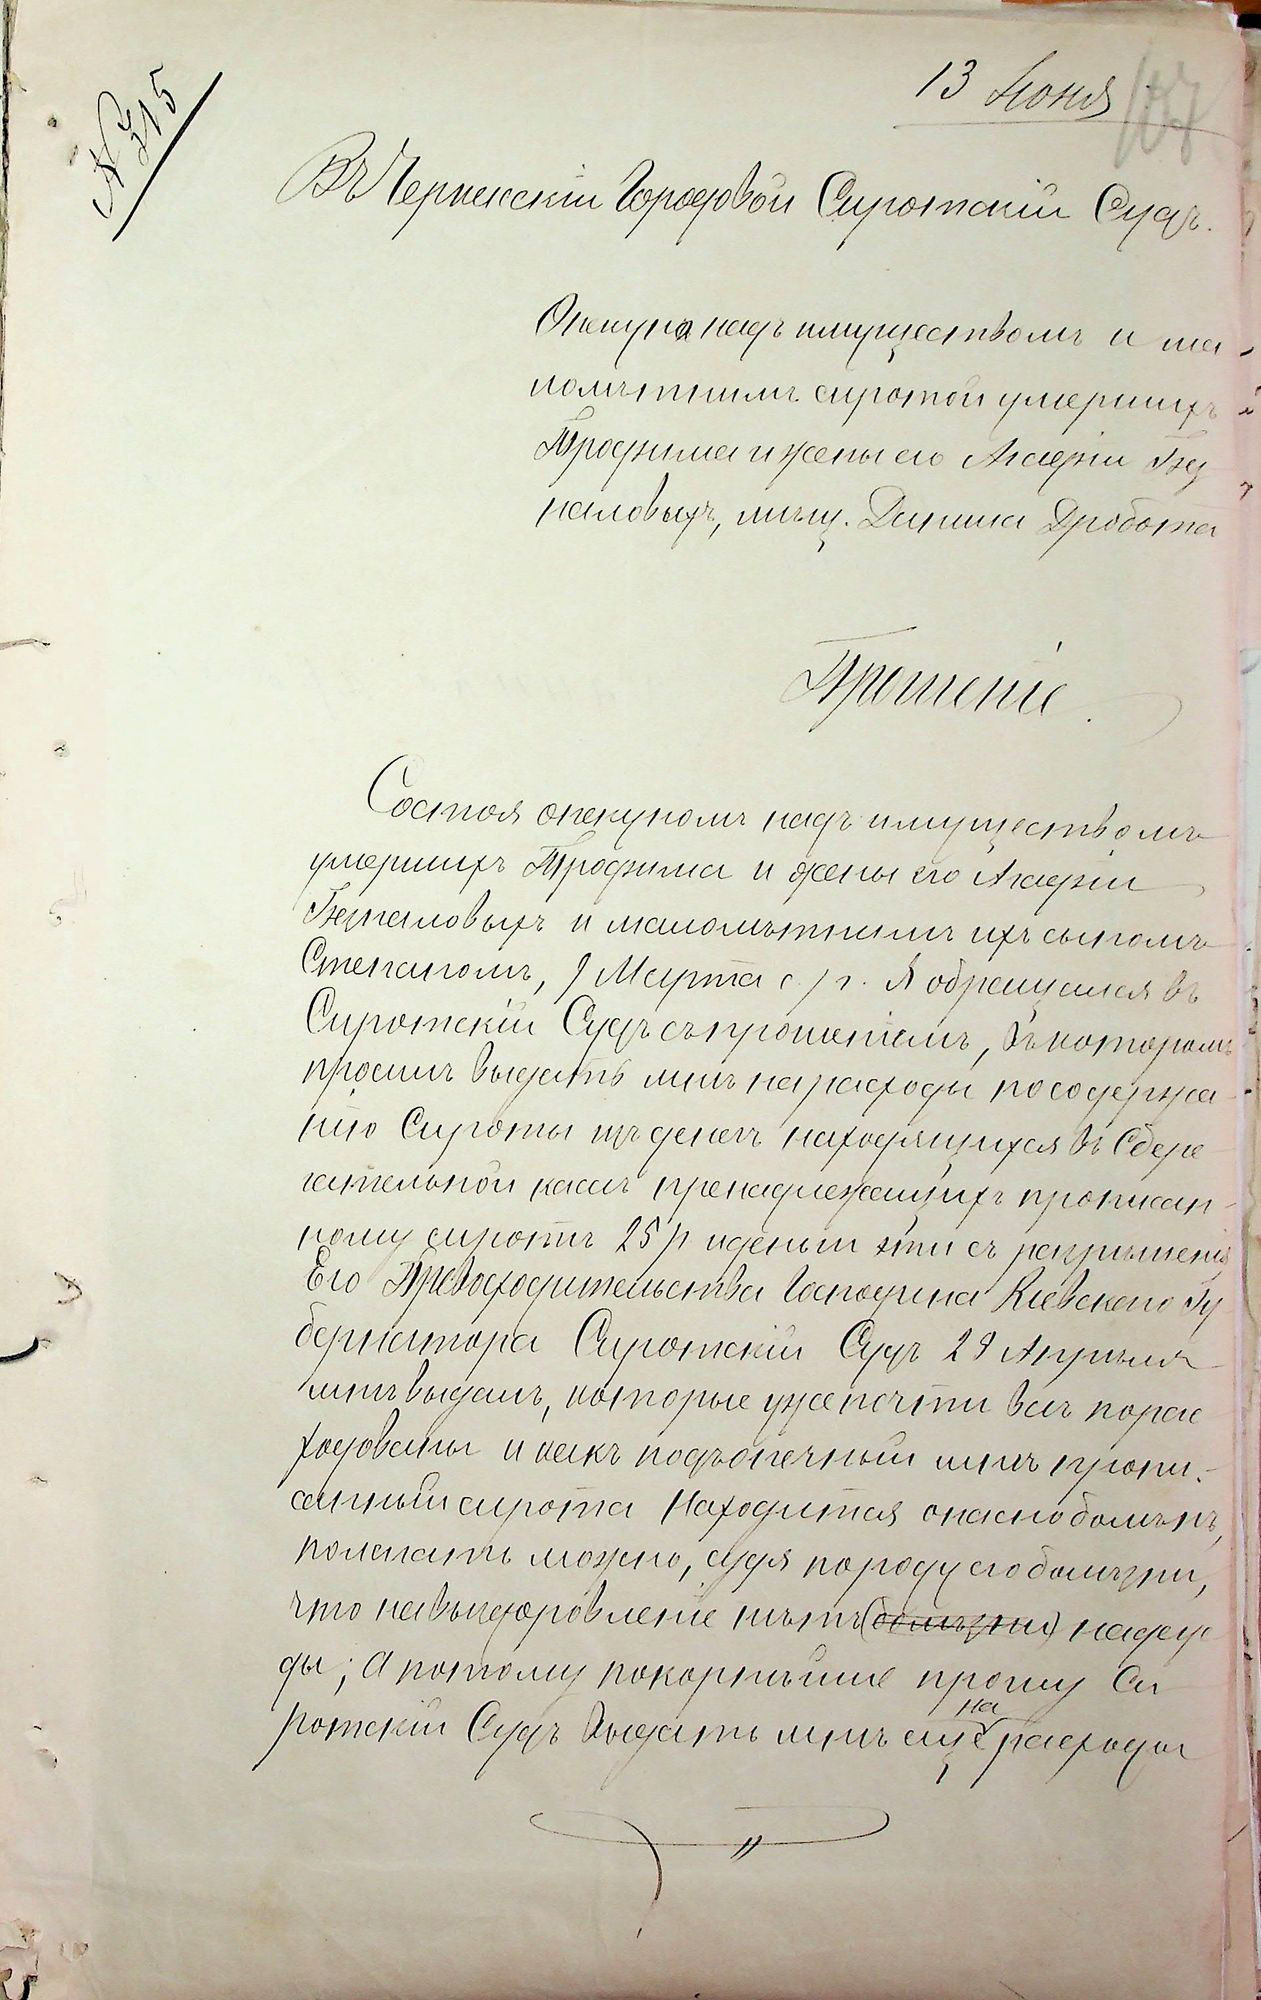 № 315
13 Июня
107
Въ Черкасскій Городовой Сиротскій Судъ.
Опекуна надъ имуществомъ и ма
лолѣтнимъ сиротой умершихъ
Трофима и жены его Агафіи
наловыхъ, мѣщ. Данила Дробота
Прошеніе.
Состоя опекуномъ надъ имуществомъ
умершихъ Трофима и жены его Агафіи
и малолѣтнимъ ихъ сыномъ
Степаномъ, 9 Марта с/г. Я обращался въ
Сиротскій Судъ съ прошеніемъ, въ которомъ
просилъ выдать мнѣ на расходы по содержа-
нію Сироты изъ денегъ находящихся въ Сбере
гательной кассѣ пренадлежащихъ прописан-
ному сиротѣ 25 р и деньги эти съ разрѣшенія
Его Превосходительства Господина Кіевскаго Гу
бернатора Сиротскій Судъ 29 Апрѣля
мнѣ выдалъ, которые уже почти всѣ порас
ходованы и какъ подъопечный мнѣ пропи-
санный сирота Находится опасно боленъ,
полагать можно, судя породу его болѣзни,
что навыздоровленіе нѣтъ (болѣзни) надеж
ды; А потому покорнѣйше прошу Си
ротскій Судъ выдать мнѣ еще на расходы